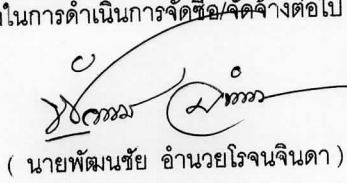 ในการดำเนินการจัดซื้อ/จัดจ้างต่อไป
( นายพัฒนชัย อำนวยโรจนจินดา )